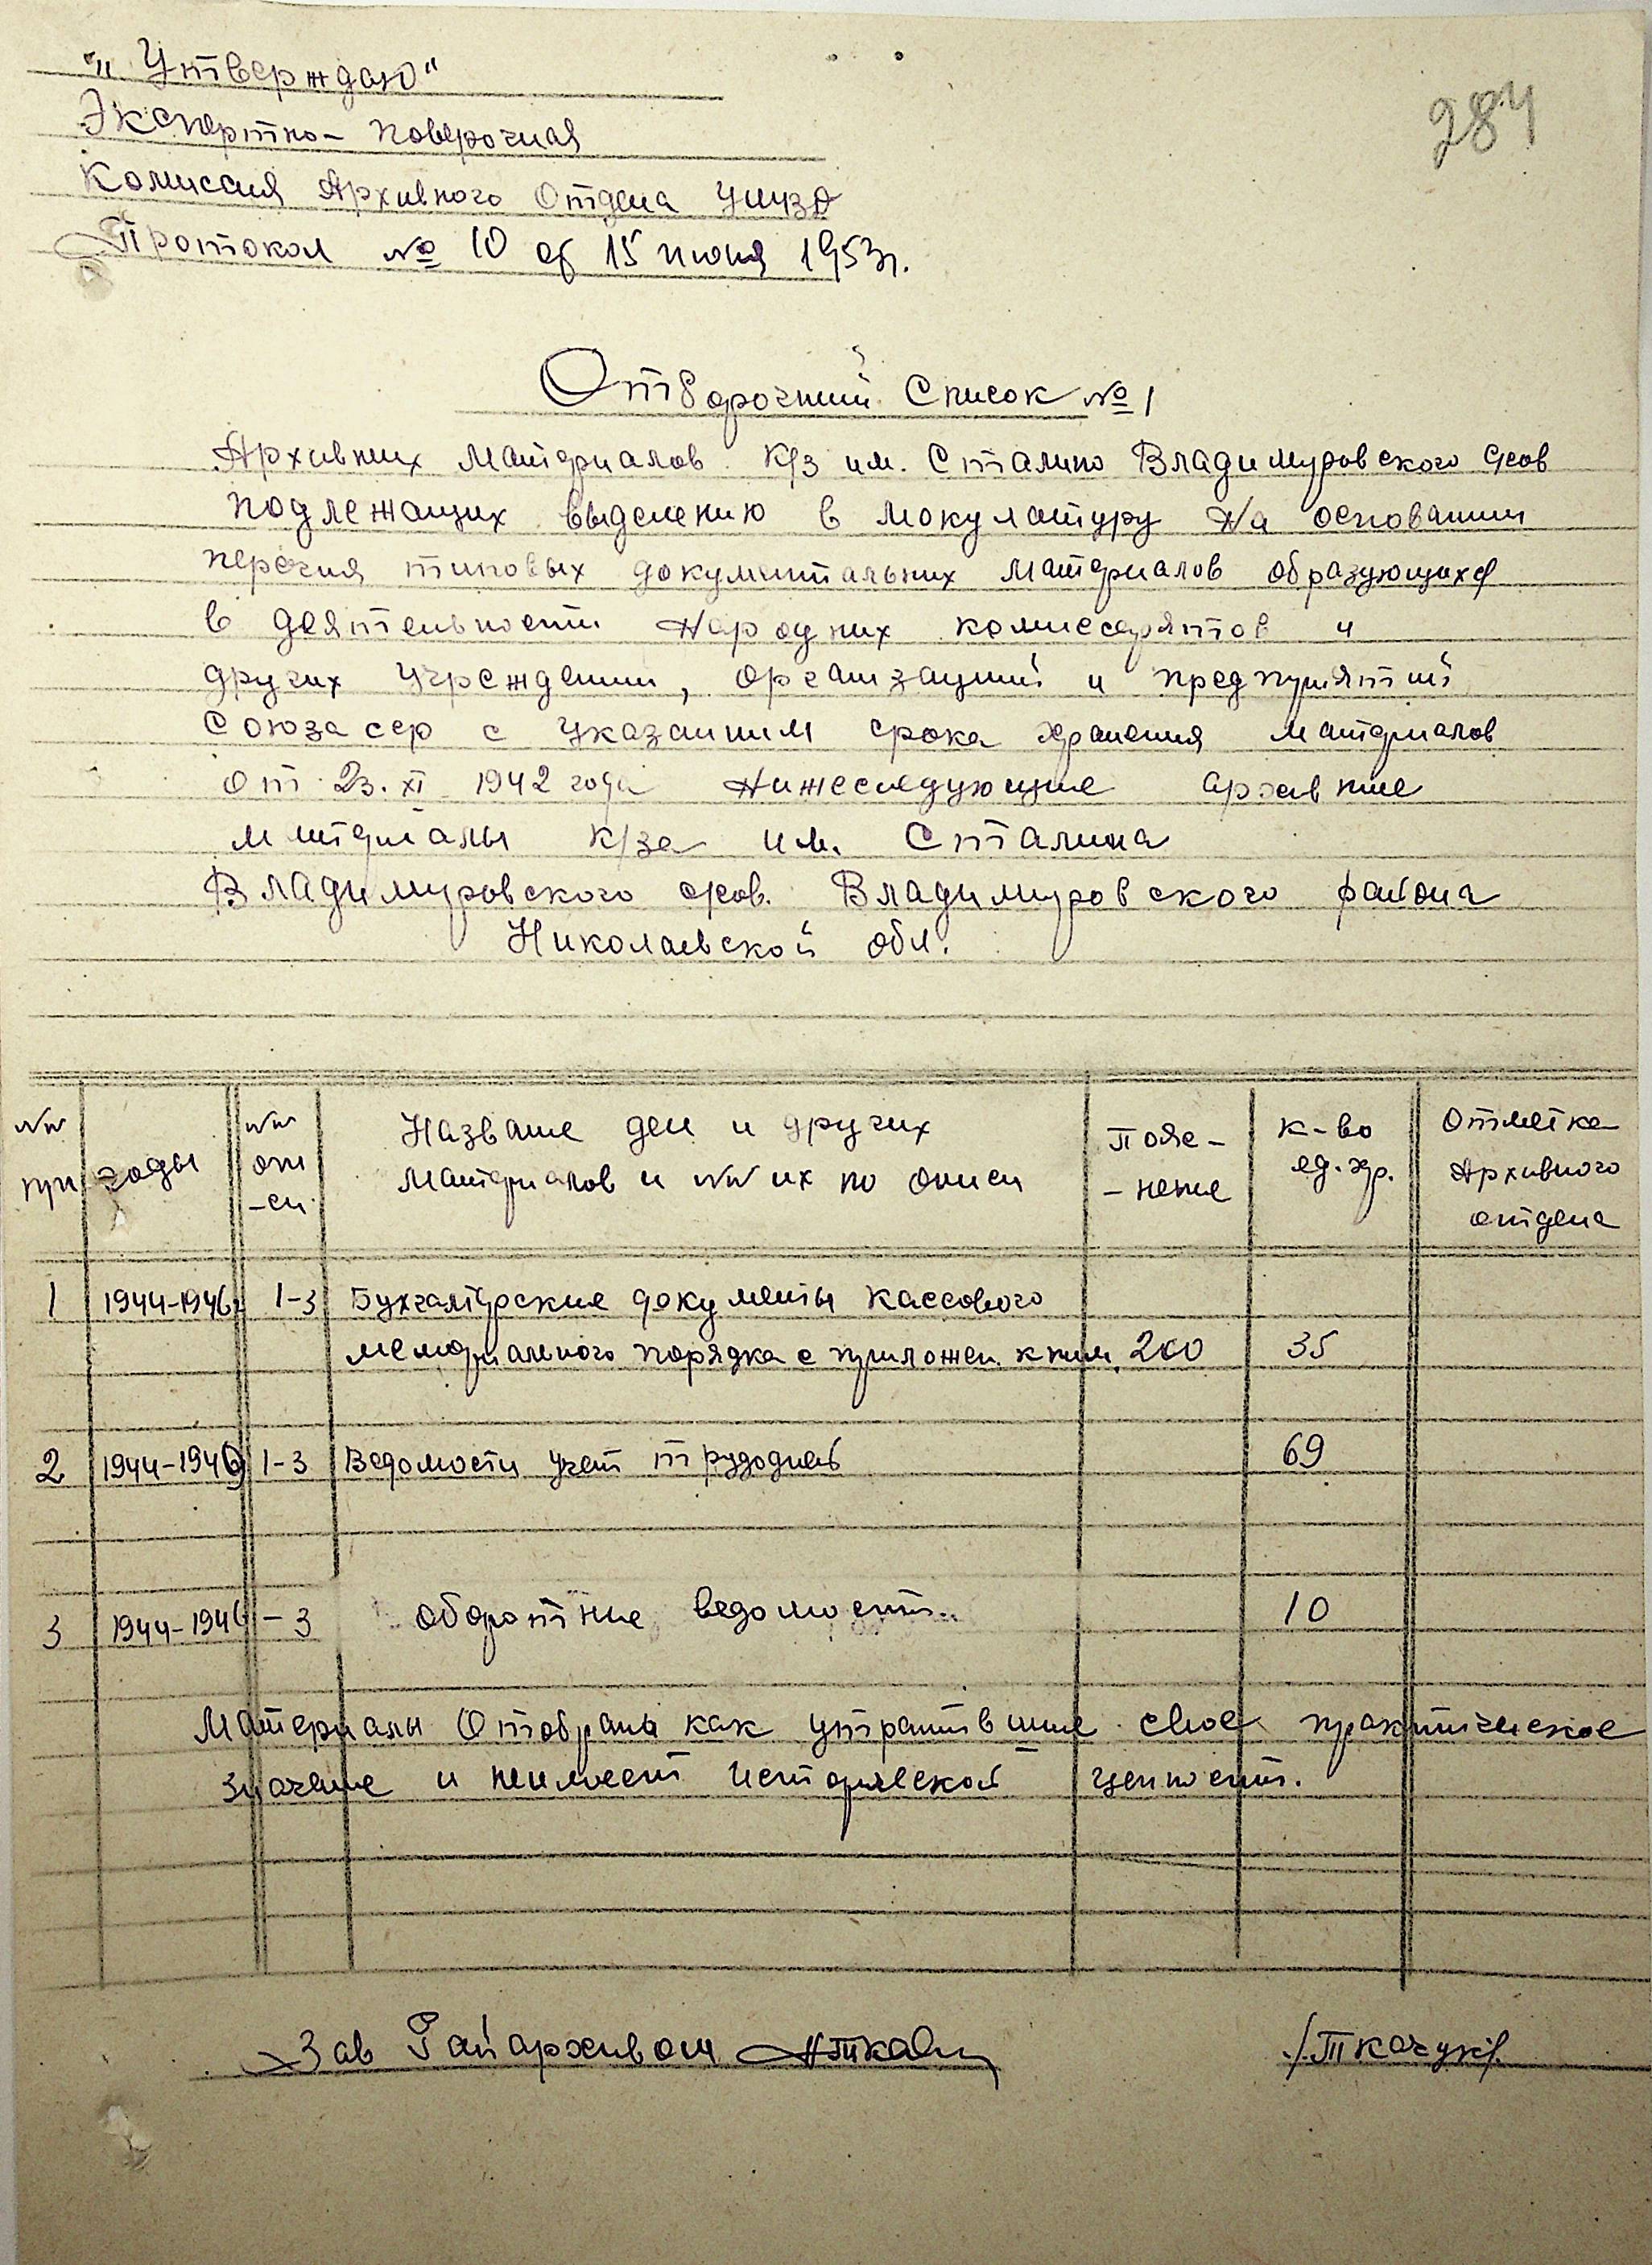 "Утверждаю"
284
Экспертно-поверочная
Комиссия Архивного Отдела УМВД
Протокол № 10 от 15 июня 1953г.
Отборочный Список № 1
Архивных Материалов к/з им. Сталино Владимировского с/сов
подлежащих выделению в мокулатуру На основании
перечня типовых документальных материалов образующихся
в деятельности Народних комиссариятов и
других учреждении, организаций и предприятий
Союза сср с указанним срока хранения материалов
от 23. XI 1942 года Нижеследующие архивные
материалы к/за им. Сталина
Владимировского с/сов. Владимировского района
Николаевской обл.
№№ пп годы №№ опи-си Название дел и других материалов и №№ их по описи Пояс-нение к-во ед. хр. Отметка Архивного отдела
1 1944-1946г 1-3 Бухгалтерские документы кассового
мемориального порядка с приложен. к ним. 200 35
2 1944-1946 1-3 Ведомости учет трудодней 69
3 1944-1946 -3 оборотные ведомости. 10
Материалы Отобраны как утратившие свое практическое
значение и неимеет исторической ценности.
Зав Райархивом /Ткачук/